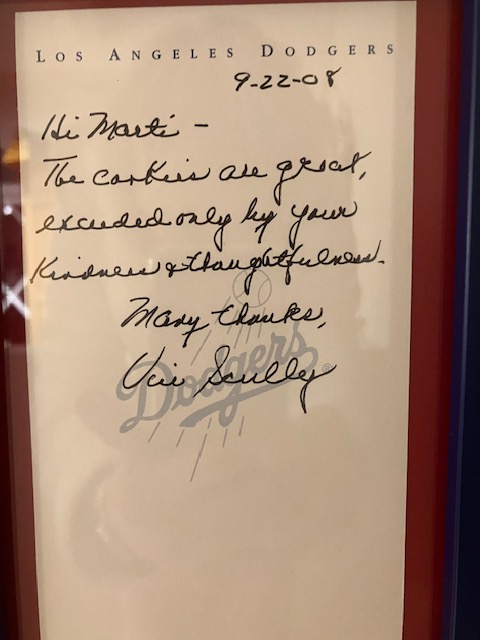 LOS ANGELES DODGERS
9-22-08
Hi Marti -
The cookies are great,
exceeded only by your
Kindness & thoughtfulness.
Many thanks,
Vin Scully
Dodgers